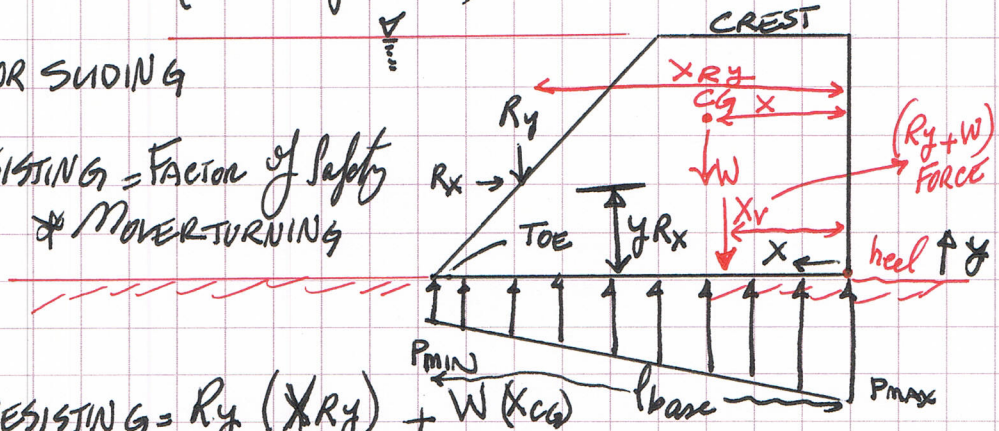 CREST
OR SLIDING
XRY
CG X
Ry
(Ry+W)
FORCE
ISTING = FACTOR of Safety
Rx
W
* MOVERTURNING
TOE
yRx
Xr
X
heel
y
PMIN
PMAX
lbase
ESISTING = Ry (XRy) + W(XCG)